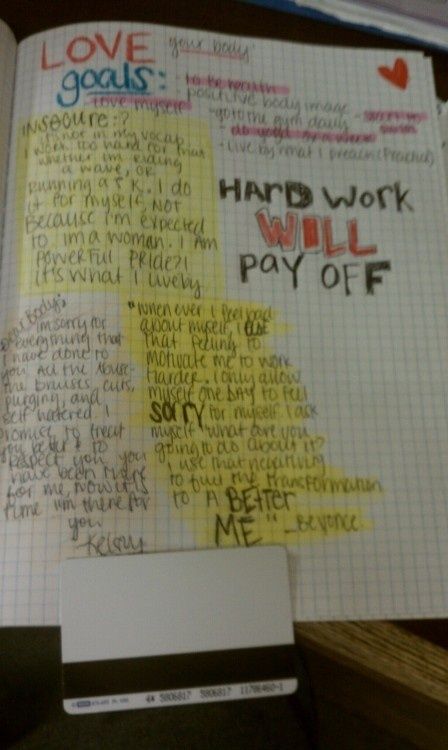 LOVE your body!
goals:
- to be health
positive body image
- love myself
- go to the gym daily - start to swim
- do yoga 3x a week
- Live by what I preach
INSECURE:?
is not in my vocab
I work too hard for that
whether im riding
a wave, OR
Running a 5K. I do
it for myself, NOT
Because I'm expected
to, im a woman. I AM
POWERFUL PRIDE?!
it's what I live by
HARD WORK
WILL
PAY OFF
Dear Body,
im sorry for
everything that
I have done to
you. All the abuse
the bruises, cuts,
purging, and
self hatered I
promise to treat
you better & to
respect you, you
have been there
for me, now it is
time im there for
you
Kelsy
"when ever I feel bad
about myself, I use
that feeling to
motivate me to work
Harder. I only allow
myself one DAY to feel
SORRY for myself. I ask
myself "what are you
going to do about it?
I use that negativity
to fuel the transformation
to "A BETTER
ME" -Beyonce
5806817 5806817 11706460-1